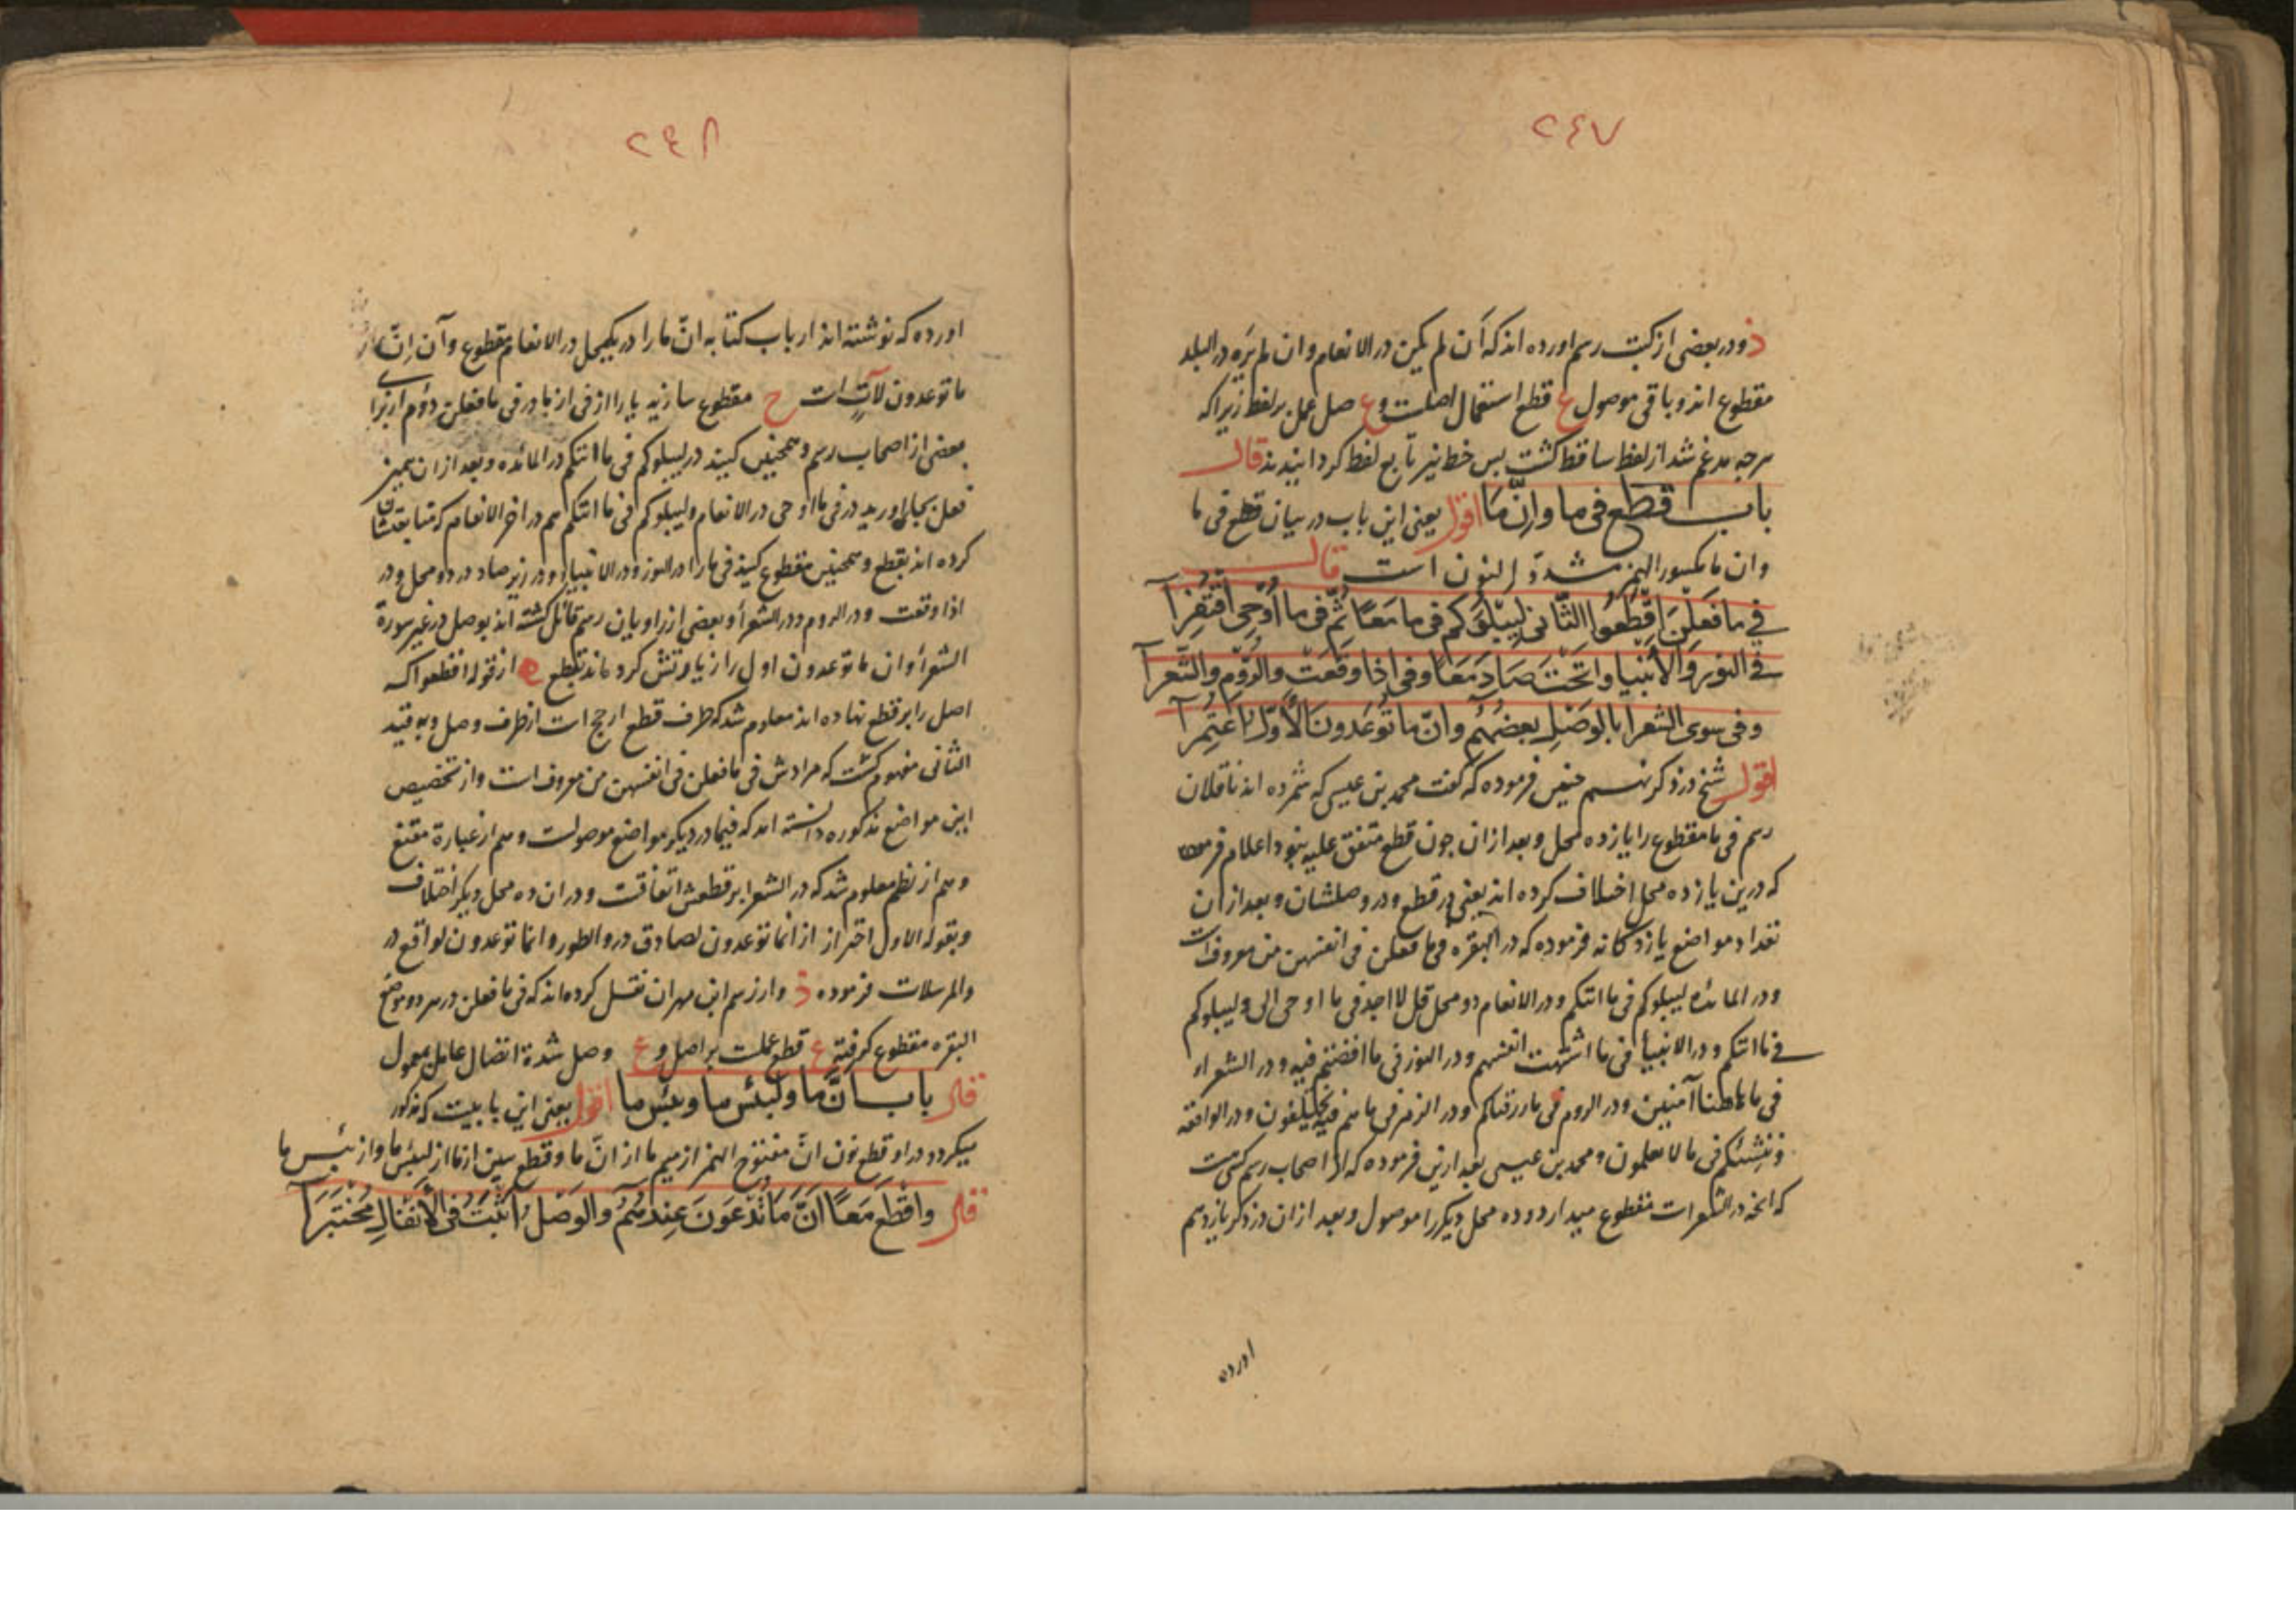 ٢٤٧
ذ ودر بعضی از کتب رسم اورده اند که أن لم یکن در الانعام وان لم یره در البلد
مقطوع اند و باقی موصول ع قطع استعمال اصلست و ع صل عمل بر لفظ زیرا که
هرچه مدغم شد از لفظ ساقط کشت پس خط نیز تابع لفظ کردانیدند قال
باب قطع فی ما وإنّ ما اقول یعنی این باب در بیان قطع فی ما
وان ما مکسور الهمز مشدة النون است قال
فی ما فعلن اقطعوا الثانی لیبلوکم فی ما معا ثم فی ما أوحی اقتفرا
فی النور والأنبیا وا تحت صاد معا وفی إذا وقعت والروم والشعرا
وفی سوی الشعرا بالوصل بعضهم وانّ ما توعدون الأول اعتمرا
اقول شیخ در ذکر رسم چنین فرموده که کفت محمد بن عیسی که شمرده اند ناقلان
رسم فی ما مقطوع را یازده محل وبعد ازان چون قطع متفق علیه نبود اعلام فرموده
که درین یازده محل اختلاف کرده اند یعنی در قطع ودر وصلشان وبعد ازان
تعداد مواضع یازدکانه فرموده که در البقره فی ما فعلن فی انفسهن من معروفست
ودر المائده لیبلوکم فی ما اتیکم ودر الانعام دو محل قل لا اجد فی ما اوحی الی ولیبلوکم
فی ما اتیکم ودر الانبیأ فی ما اشتهت انفسهم ودر النور فی ما افضتم فیه ودر الشعرا
فی ما هاهنا آمنین ودر الروم فی ما رزقناکم ودر الزمر فی ما هم فیه یختلفون ودر الواقعه
وننشئکم فی ما لا تعلمون ومحمد بن عیسی بعد ازین فرموده که از اصحاب رسم کسی هست
که انچه در الشعراست مقطوع میدارد وده محل دیکر را موصول وبعد ازان در ذکر یازدهم
اورده
٢٤٨
اورده که نوشته اند ارباب کتابه انّ ما را در یکمحل در الانعام مقطوع وآن إنّ
ما توعدون لآتٍ است ح مقطوع سازید یا را از فی از ما در فی ما فعلن دوم
بعضی از اصحاب رسم وهمچنین کنید در لیبلوکم فی ما اتیکم در المائده وبعد ازان همین
فعل بجا اورید در فی ما اوحی در الانعام ولیبلوکم فی ما اتیکم هم در اخر الانعام که متابعتشان
کرده اند بقطع وهمچنین مقطوع کنید فی ما را در النور ودر الانبیا ودر زیر صاد در دو محل ودر
اذا وقعت ودر الروم ودر الشعرأ وبعضی از راویان رسم قائل کشته اند بوصل در غیر سورة
الشعرأ وان ما توعدون اول را زیارتش کرده اند بقطع ه از قوله اقطعوا که
اصل را بر قطع نهاده اند معلوم شد که طرف قطع ارجح است از طرف وصل وبه قید
الثانی مفهوم کشت که مرادش فی ما فعلن فی انفسهن من معروفست واز تخصیص
این مواضع مذکوره دانسته امد که فیما در دیکر مواضع موصولست وهم از عبارة مقنع
وهم از نظم معلوم شد که در الشعرا بر قطعش اتفاقست ودر ان ده محل دیکر اختلاف
وبقوله الاول احتراز از انما توعدون لصادق در والطور وانما توعدون لواقع در
والمرسلات فرموده ذ واز رسم ابن مهران نقل کرده اند که فی ما فعلن در هر دو موضع
البقره مقطوع کرفته ع قطع عملست بر اصل و ع وصل شدة اتصال عامل بمعمول
قال باب انّ ما ولبئس ما وبئس ما اقول یعنی این بابیست که مذکور
میکردد در او قطع نون انّ مفتوح الهمز از میم ما از انّ ما وقطع سین از ما از لبئس ما واز بئس ما
قال واقطع معا انّ ما تدعون عندهم والوصل اثبت فی الأنفال مختبرا